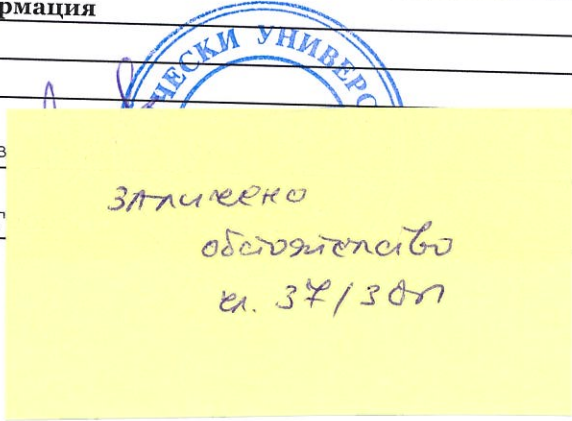 рмация
ЧЕСКИ УНИВЕРС
в
заличено
обстоятелство
чл. 37/ЗОП